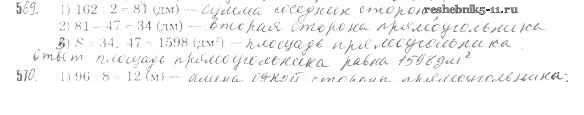 569. 1) 162 : 2 = 81 (дм) – сумма соседних сторон
reshebnik5-11.ru
2) 81 – 47 = 34 (дм) – вторая сторона прямоугольника
3) S = 34 · 47 = 1598 (дм²) – площадь прямоугольника
Ответ площадь прямоугольника равна 1598 дм²
570. 1) 96 : 8 = 12 (м) – длина одной стороны прямоугольника;